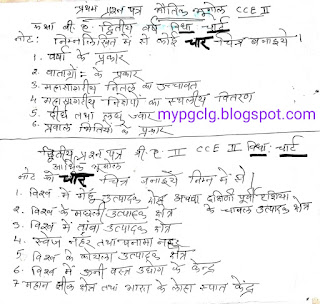 प्रथम प्रश्न पत्र भौतिक भूगोल CCE II
कक्षा बी. ए. द्वितीय वर्ष विधा चार्ट
नोट: निम्नलिखित में से कोई चार चित्र बनाइये।
1. वर्षा के प्रकार
2. वाताग्रों के प्रकार
3. महासागरीय नितल का उच्चावच
4 महासागरीय निक्षेपों का स्थलीय वितरण
5. दीर्घ तथा लघु ज्वार
6. प्रवाल भित्तियों के प्रकार
mypgclg.blogspot.com
द्वितीय प्रश्न पत्र बी. ए. II CCE II विधा: चार्ट
आर्थिक भूगोल
नोट कोई चार चित्र बनाइये निम्न में से।
1. विश्व में गेहूँ उत्पादक क्षेत्र अथवा दक्षिणी पूर्वी एशिया के चावल उत्पादक क्षेत्र
2. विश्व के मछली उत्पादक क्षेत्र
3. विश्व में तांबा उत्पादक क्षेत्र
4. स्वेज नहर तथा पनामा नहर
5. विश्व के कोयला उत्पादक क्षेत्र
6. विश्व में ऊनी वस्त्र उद्योग के केन्द्र
7 महान झील क्षेत्र तथा भारत के लोहा इस्पात केंद्र